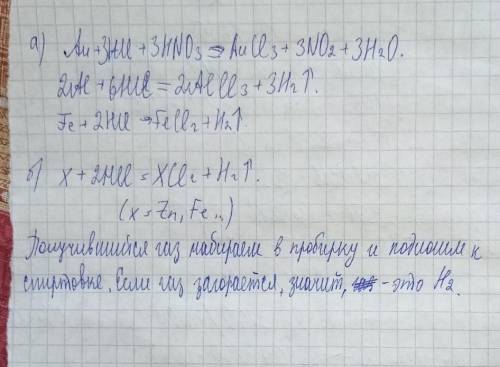 а) Au+3HCl+3HNO3 = AuCl3+3NO2+3H2O.
2Al+6HCl=2AlCl3+3H2↑.
Fe+2HCl→FeCl2+H2↑
б) X+2HCl=XCl2+H2↑.
(X=Zn, Fe...)
Получившийся газ набираем в пробирку и подносим к
спиртовке. Если газ загорается, значит, - это H2.